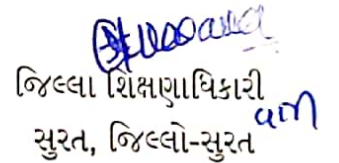 જિલ્લા શિક્ષણાધિકારી
સુરત, જિલ્લો-સુરત વતી